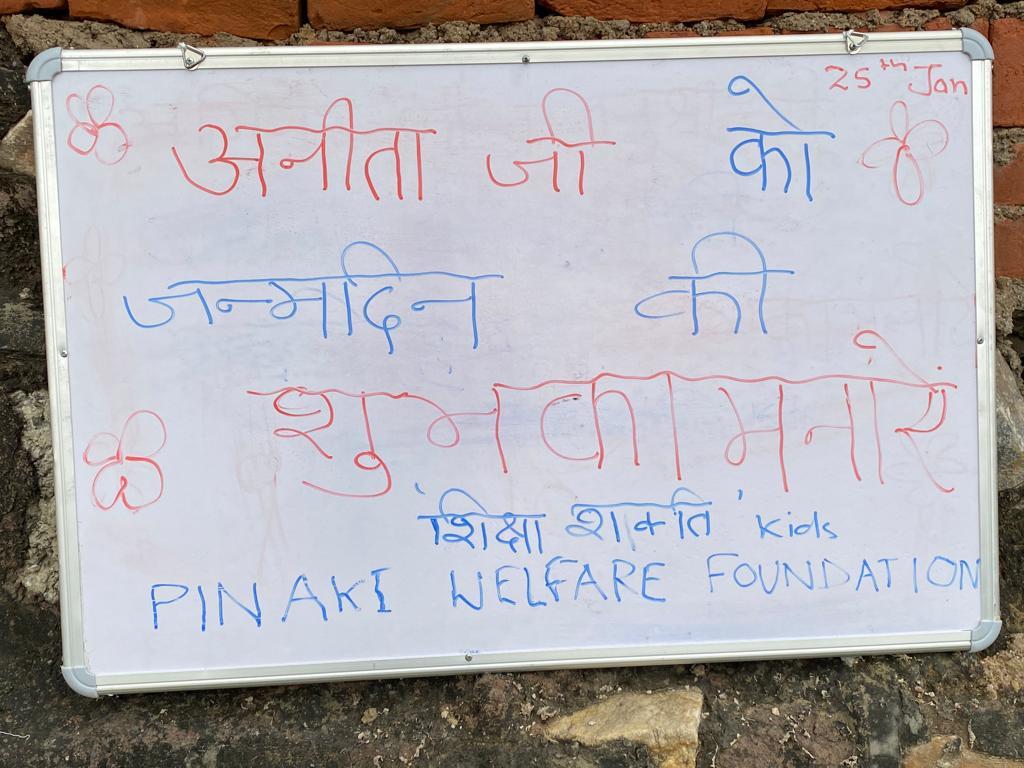 25th Jan
अनीता जी को
जन्मदिन की
शुभकामनाऐं
'शिक्षा शक्ति' Kids
PINAKI WELFARE FOUNDATION